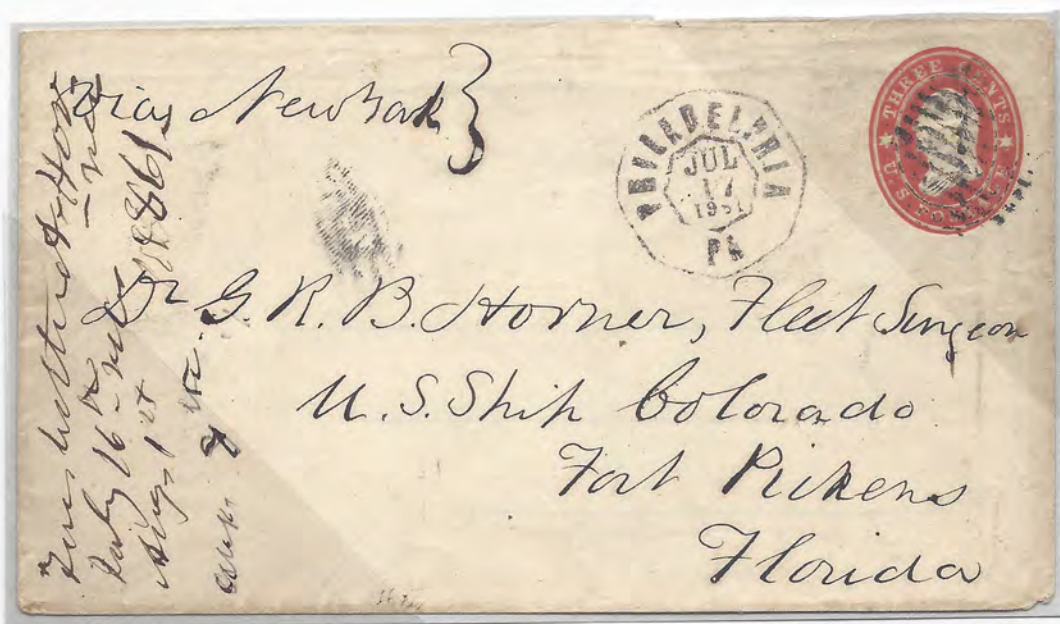 via New York
PHILADELPHIA
JUL
17
1861
PA
THREE CENTS
U.S. POSTAGE
Dr G. R. B. Horner, Fleet Surgeon
U. S. Ship Colorado
Fort Pickens
Florida
July 16
Augt 1st
1861